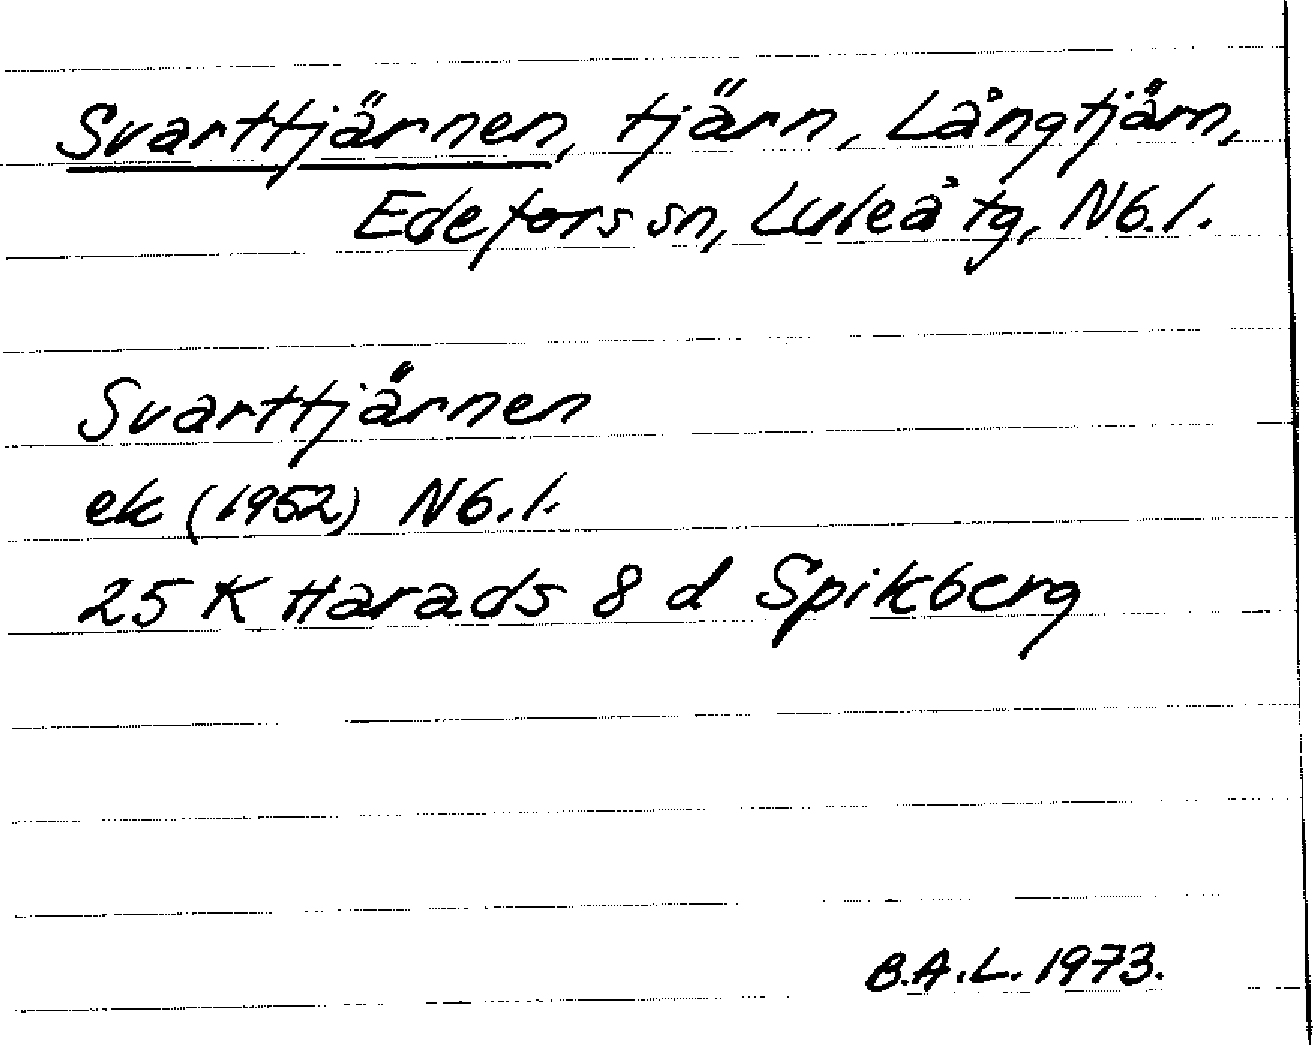 Svarttjärnen, tjärn, Långtjärn,
Edefors sn, Luleå tg, Nb.l.
Svarttjärnen
ek (1952) Nb.l.
25 K Harads 8 d Spikberg
B.A.L. 1973.